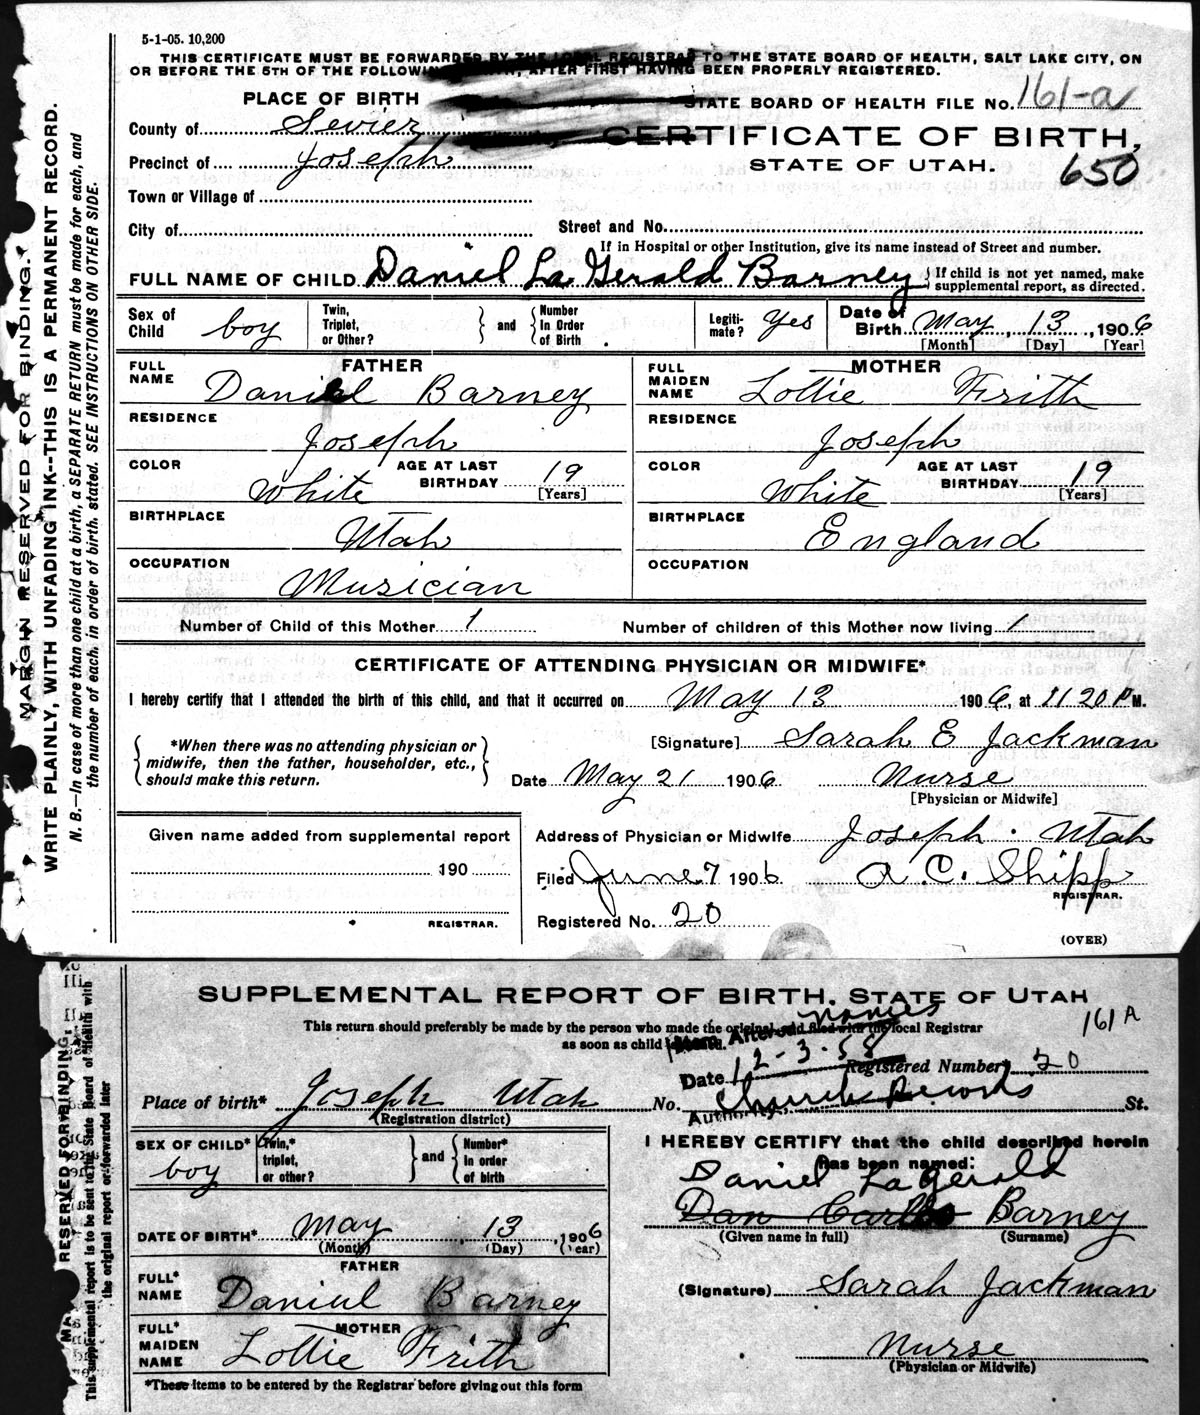 5-1-05. 10,200
THIS CERTIFICATE MUST BE FORWARDED BY THE LOCAL REGISTRAR TO THE STATE BOARD OF HEALTH, SALT LAKE CITY, ON
OR BEFORE THE 5TH OF THE FOLLOWING MONTH, AFTER FIRST HAVING BEEN PROPERLY REGISTERED.
PLACE OF BIRTH
STATE BOARD OF HEALTH FILE No. 161-a
County of Sevier
CERTIFICATE OF BIRTH,
Precinct of Joseph
STATE OF UTAH.
650
Town or Village of
City of
Street and No.
If in Hospital or other Institution, give its name instead of Street and number.
FULL NAME OF CHILD Daniel La Gerald Barney } If child is not yet named, make supplemental report, as directed.
Sex of Child boy
Twin, Triplet, or Other? } and { Number In Order of Birth
Legiti-mate? Yes
Date of Birth May 13, 1906
[Month] [Day] [Year]
FATHER
FULL NAME Daniel Barney
RESIDENCE Joseph
COLOR White
AGE AT LAST BIRTHDAY 19 [Years]
BIRTHPLACE Utah
OCCUPATION Musician
MOTHER
FULL MAIDEN NAME Lottie Frith
RESIDENCE Joseph
COLOR White
AGE AT LAST BIRTHDAY 19 [Years]
BIRTHPLACE England
OCCUPATION
Number of Child of this Mother 1
Number of children of this Mother now living 1
CERTIFICATE OF ATTENDING PHYSICIAN OR MIDWIFE*
I hereby certify that I attended the birth of this child, and that it occurred on May 13 1906, at 11 20 P M.
{ *When there was no attending physician or midwife, then the father, householder, etc., should make this return. }
[Signature] Sarah E Jackman
Date May 21 1906
Nurse
[Physician or Midwife]
Given name added from supplemental report
190
REGISTRAR.
Address of Physician or Midwife Joseph. Utah
Filed June 7 1906 A. C. Shipp
REGISTRAR.
Registered No. 20
(OVER)
MARGIN RESERVED FOR BINDING.
WRITE PLAINLY, WITH UNFADING INK--THIS IS A PERMANENT RECORD.
N. B.—In case of more than one child at a birth, a SEPARATE RETURN must be made for each, and
the number of each, in order of birth, stated. SEE INSTRUCTIONS ON OTHER SIDE.
SUPPLEMENTAL REPORT OF BIRTH, STATE OF UTAH
This return should preferably be made by the person who made the original and filed with the local Registrar
as soon as child
names
161 A
Date 12-3-58
Registered Number* 20
Place of birth* Joseph Utah No. St.
(Registration district)
Authority Church Records
SEX OF CHILD* boy
Twin,* triplet, or other? } and { Number* In order of birth
DATE OF BIRTH* May 13, 1906
(Month) (Day) (Year)
FATHER
FULL* NAME Daniel Barney
MOTHER
FULL* MAIDEN NAME Lottie Frith
*These items to be entered by the Registrar before giving out this form
I HEREBY CERTIFY that the child described herein
has been named:
Daniel LaGerald
Dan Barney
(Given name in full) (Surname)
(Signature) Sarah Jackman
Nurse
(Physician or Midwife)
RESERVED FOR BINDING.
This supplemental report is to be sent to the State Board of Health with
the original report or forwarded later